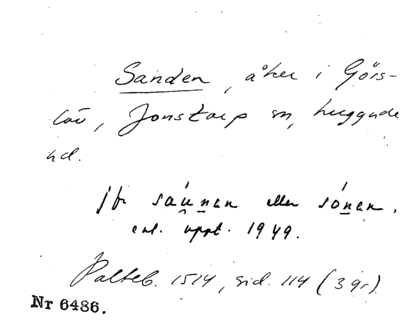 Sanden, åker i Görs-
löv, Jonstorp sn, Luggude
hd.
jfr sáu̯nan eller sónan.
enl. uppt. 1949.
Palteb. 1514, sid. 114 (3 gr).
Nr 6486.